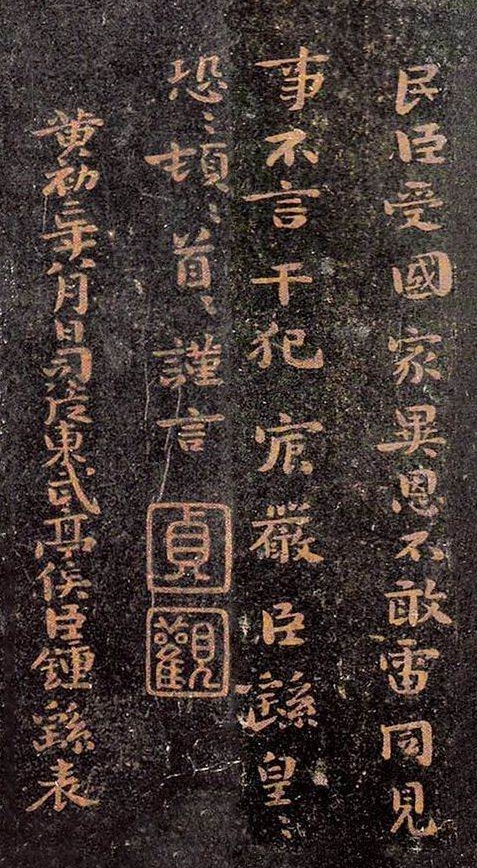 民臣受國家異恩不敢雷同見
事不言干犯宸嚴臣繇皇〻
恐〻頓〻首〻謹言
貞觀
黄初二年八月日司徒東武亭侯臣鍾繇表